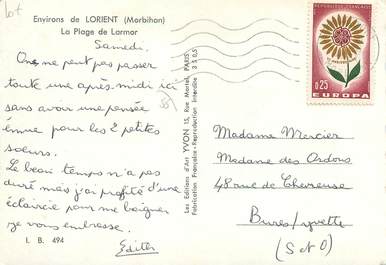 lot
Environs de LORIENT (Morbihan)
La Plage de Larmor
Samedi.
On ne peut pas passer
toute une après-midi ici
sans avoir une pensée
émue pour les 2 petites
soeurs.
Le beau temps n'a pas
duré mais j'ai profité d'une
éclaircie pour me baigner
je vous embrasse.
Edith
I. B. 494
Les Editions d'Art YVON 15, Rue Martel, PARIS
Fabrication Française - Reproduction Interdite
REPUBLIQUE FRANÇAISE
0,25
EUROPA
Madame Mercier
Madame des Ordons
48 rue de Chevreuse
Bures/yvette
(S et O)